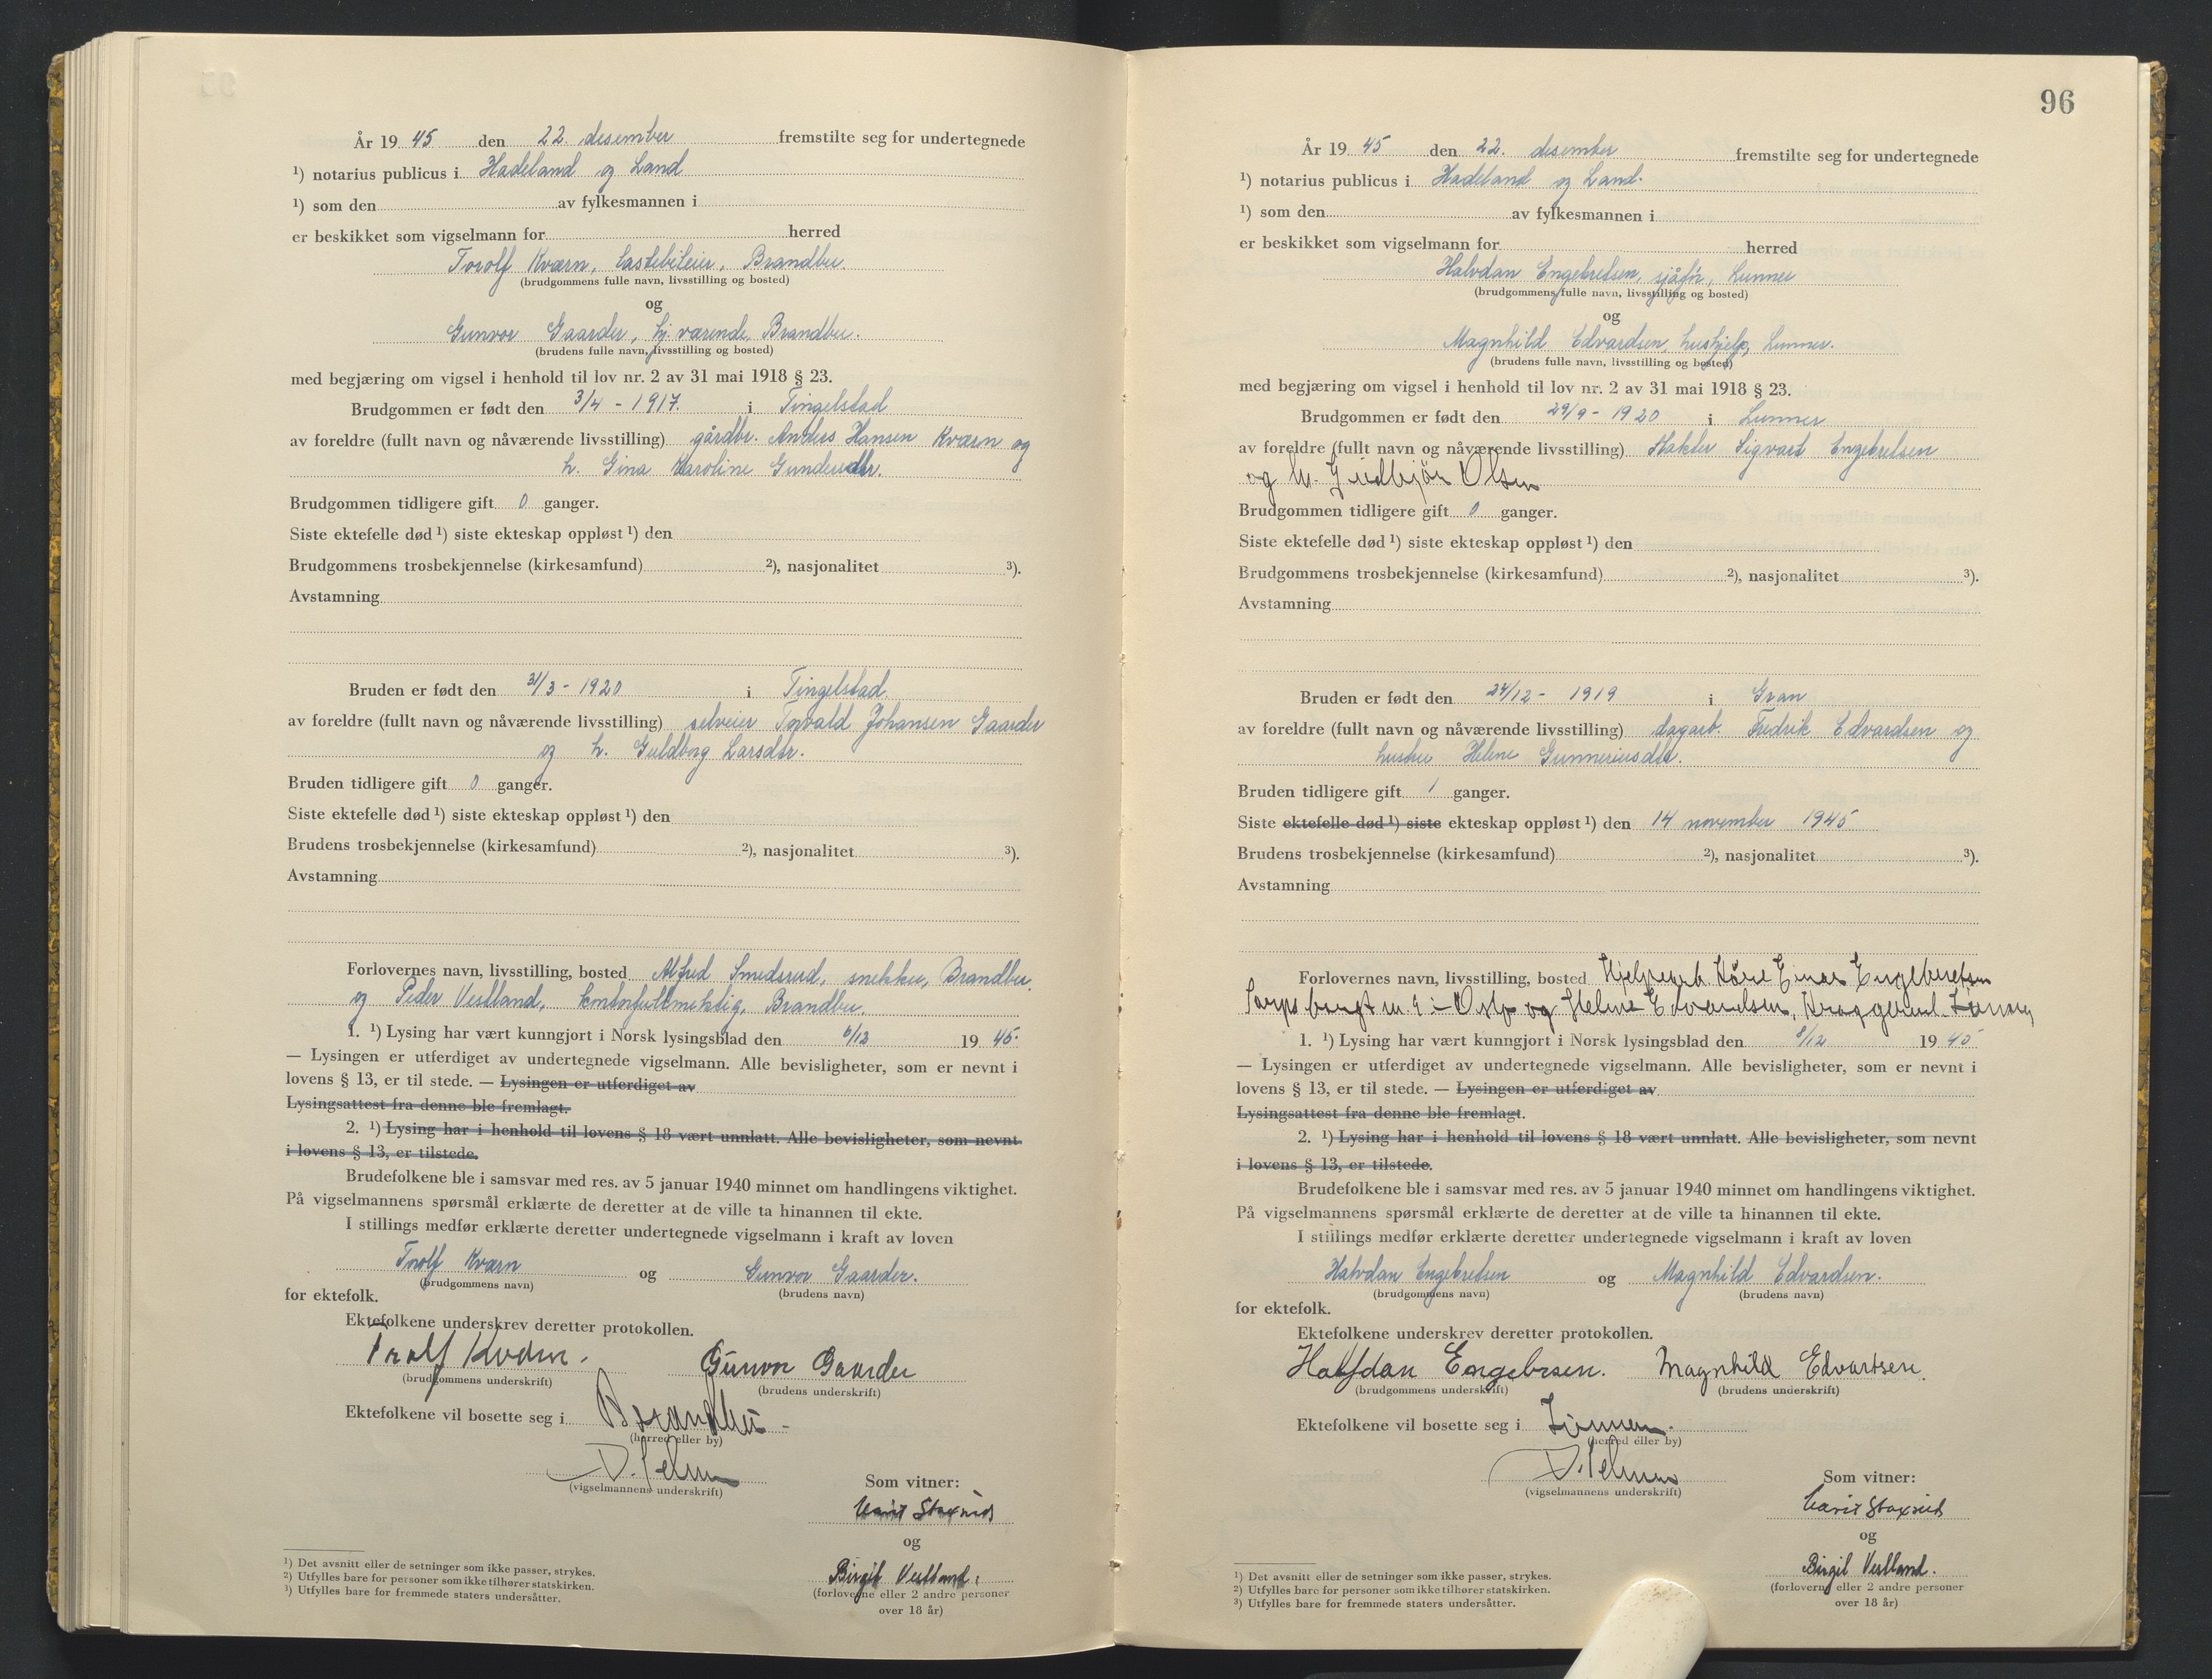 År 19 45 den 22. desember fremstilte seg for undertegnede
¹) notarius publicus i Hadeland og Land
¹) som den av fylkesmannen i
er beskikket som vigselmann for herred
Torolf Kværn, lastebileier, Brandbu.
(brudgommens fulle navn, livsstilling og bosted)
og
Gunvor Gaarder, hj. værende, Brandbu.
(brudens fulle navn, livsstilling og bosted)
med begjæring om vigsel i henhold til lov nr. 2 av 31 mai 1918 § 23.
Brudgommen er født den 3/4 - 1917. i Tingelstad
av foreldre (fullt navn og nåværende livsstilling) gårdbr. Anders Hansen Kværn og
h. Gina Karoline Gundersdtr.
Brudgommen tidligere gift 0 ganger.
Siste ektefelle død ¹) siste ekteskap oppløst ¹) den
Brudgommens trosbekjennelse (kirkesamfund) ²), nasjonalitet ³).
Avstamning
Bruden er født den 31/3 - 1920 i Tingelstad
av foreldre (fullt navn og nåværende livsstilling) selveier Torvald Johansen Gaarder
og h. Guldborg Larsdtr.
Bruden tidligere gift 0 ganger.
Siste ektefelle død ¹) siste ekteskap oppløst ¹) den
Brudens trosbekjennelse (kirkesamfund) ²), nasjonalitet ³).
Avstamning
Forlovernes navn, livsstilling, bosted Alfred Smedsrud, snekker, Brandbu.
og Peder Vestland, kontorfullmektig, Brandbu.
1. ¹) Lysing har vært kunngjort i Norsk lysingsblad den 6/12 19 45.
— Lysingen er utferdiget av undertegnede vigselmann. Alle bevisligheter, som er nevnt i
lovens § 13, er til stede. — Lysingen er utferdiget av
Lysingsattest fra denne ble fremlagt.
2. ¹) Lysing har i henhold til lovens § 18 vært unnlatt. Alle bevisligheter, som nevnt
i lovens § 13, er tilstede.
Brudefolkene ble i samsvar med res. av 5 januar 1940 minnet om handlingens viktighet.
På vigselmannens spørsmål erklærte de deretter at de ville ta hinannen til ekte.
I stillings medfør erklærte deretter undertegnede vigselmann i kraft av loven
Torolf Kværn og Gunvor Gaarder.
(brudgommens navn) (brudens navn)
for ektefolk.
Ektefolkene underskrev deretter protokollen.
Torolf Kværn. Gunvor Gaarder
(brudgommens underskrift) (brudens underskrift)
Ektefolkene vil bosette seg i Brandbu
(herred eller by)
(vigselmannens underskrift)
Som vitner:
Marit Staxrud
og
Birgit Vestland.
(forloverne eller 2 andre personer
over 18 år)
¹) Det avsnitt eller de setninger som ikke passer, strykes.
²) Utfylles bare for personer som ikke tilhører statskirken.
³) Utfylles bare for fremmede staters undersåtter.
96
År 19 45 den 22. desember fremstilte seg for undertegnede
¹) notarius publicus i Hadeland og Land.
¹) som den av fylkesmannen i
er beskikket som vigselmann for herred
Halvdan Engebretsen, sjåfør, Lunner
(brudgommens fulle navn, livsstilling og bosted)
og
Magnhild Edvardsen, hushjelp, Lunner.
(brudens fulle navn, livsstilling og bosted)
med begjæring om vigsel i henhold til lov nr. 2 av 31 mai 1918 § 23.
Brudgommen er født den 29/9 - 1920 i Lunner
av foreldre (fullt navn og nåværende livsstilling) Sigvart Engebretsen
og h. Gudbjør Olsen
Brudgommen tidligere gift 0 ganger.
Siste ektefelle død ¹) siste ekteskap oppløst ¹) den
Brudgommens trosbekjennelse (kirkesamfund) ²), nasjonalitet ³).
Avstamning
Bruden er født den 24/12 - 1919 i Gran
av foreldre (fullt navn og nåværende livsstilling) dagarb. Fredrik Edvardsen og
hustru Helene Gunneriusdtr.
Bruden tidligere gift 1 ganger.
Siste ektefelle død ¹) siste ekteskap oppløst ¹) den 14 november 1945
Brudens trosbekjennelse (kirkesamfund) ²), nasjonalitet ³).
Avstamning
Forlovernes navn, livsstilling, bosted Kåre Einar Engelbretsen
i Oslo og Helene Edvardsen, Lunner
1. ¹) Lysing har vært kunngjort i Norsk lysingsblad den 8/12 19 45
— Lysingen er utferdiget av undertegnede vigselmann. Alle bevisligheter, som er nevnt i
lovens § 13, er til stede. — Lysingen er utferdiget av
Lysingsattest fra denne ble fremlagt.
2. ¹) Lysing har i henhold til lovens § 18 vært unnlatt. Alle bevisligheter, som nevnt
i lovens § 13, er tilstede.
Brudefolkene ble i samsvar med res. av 5 januar 1940 minnet om handlingens viktighet.
På vigselmannens spørsmål erklærte de deretter at de ville ta hinannen til ekte.
I stillings medfør erklærte deretter undertegnede vigselmann i kraft av loven
Halvdan Engebretsen og Magnhild Edvardsen.
(brudgommens navn) (brudens navn)
for ektefolk.
Ektefolkene underskrev deretter protokollen.
Halfdan Engebrsen. Magnhild Edvartsen.
(brudgommens underskrift) (brudens underskrift)
Ektefolkene vil bosette seg i Lunner.
(herred eller by)
(vigselmannens underskrift)
Som vitner:
Marit Staxrud
og
Birgit Vestland.
(forloverne eller 2 andre personer
over 18 år)
¹) Det avsnitt eller de setninger som ikke passer, strykes.
²) Utfylles bare for personer som ikke tilhører statskirken.
³) Utfylles bare for fremmede staters undersåtter.